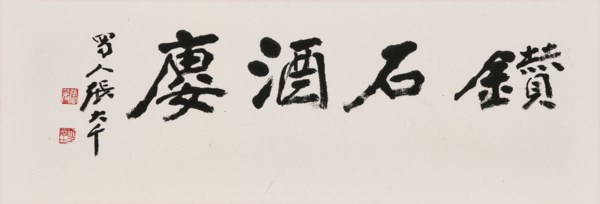 鑽石酒廔
蜀人張大千